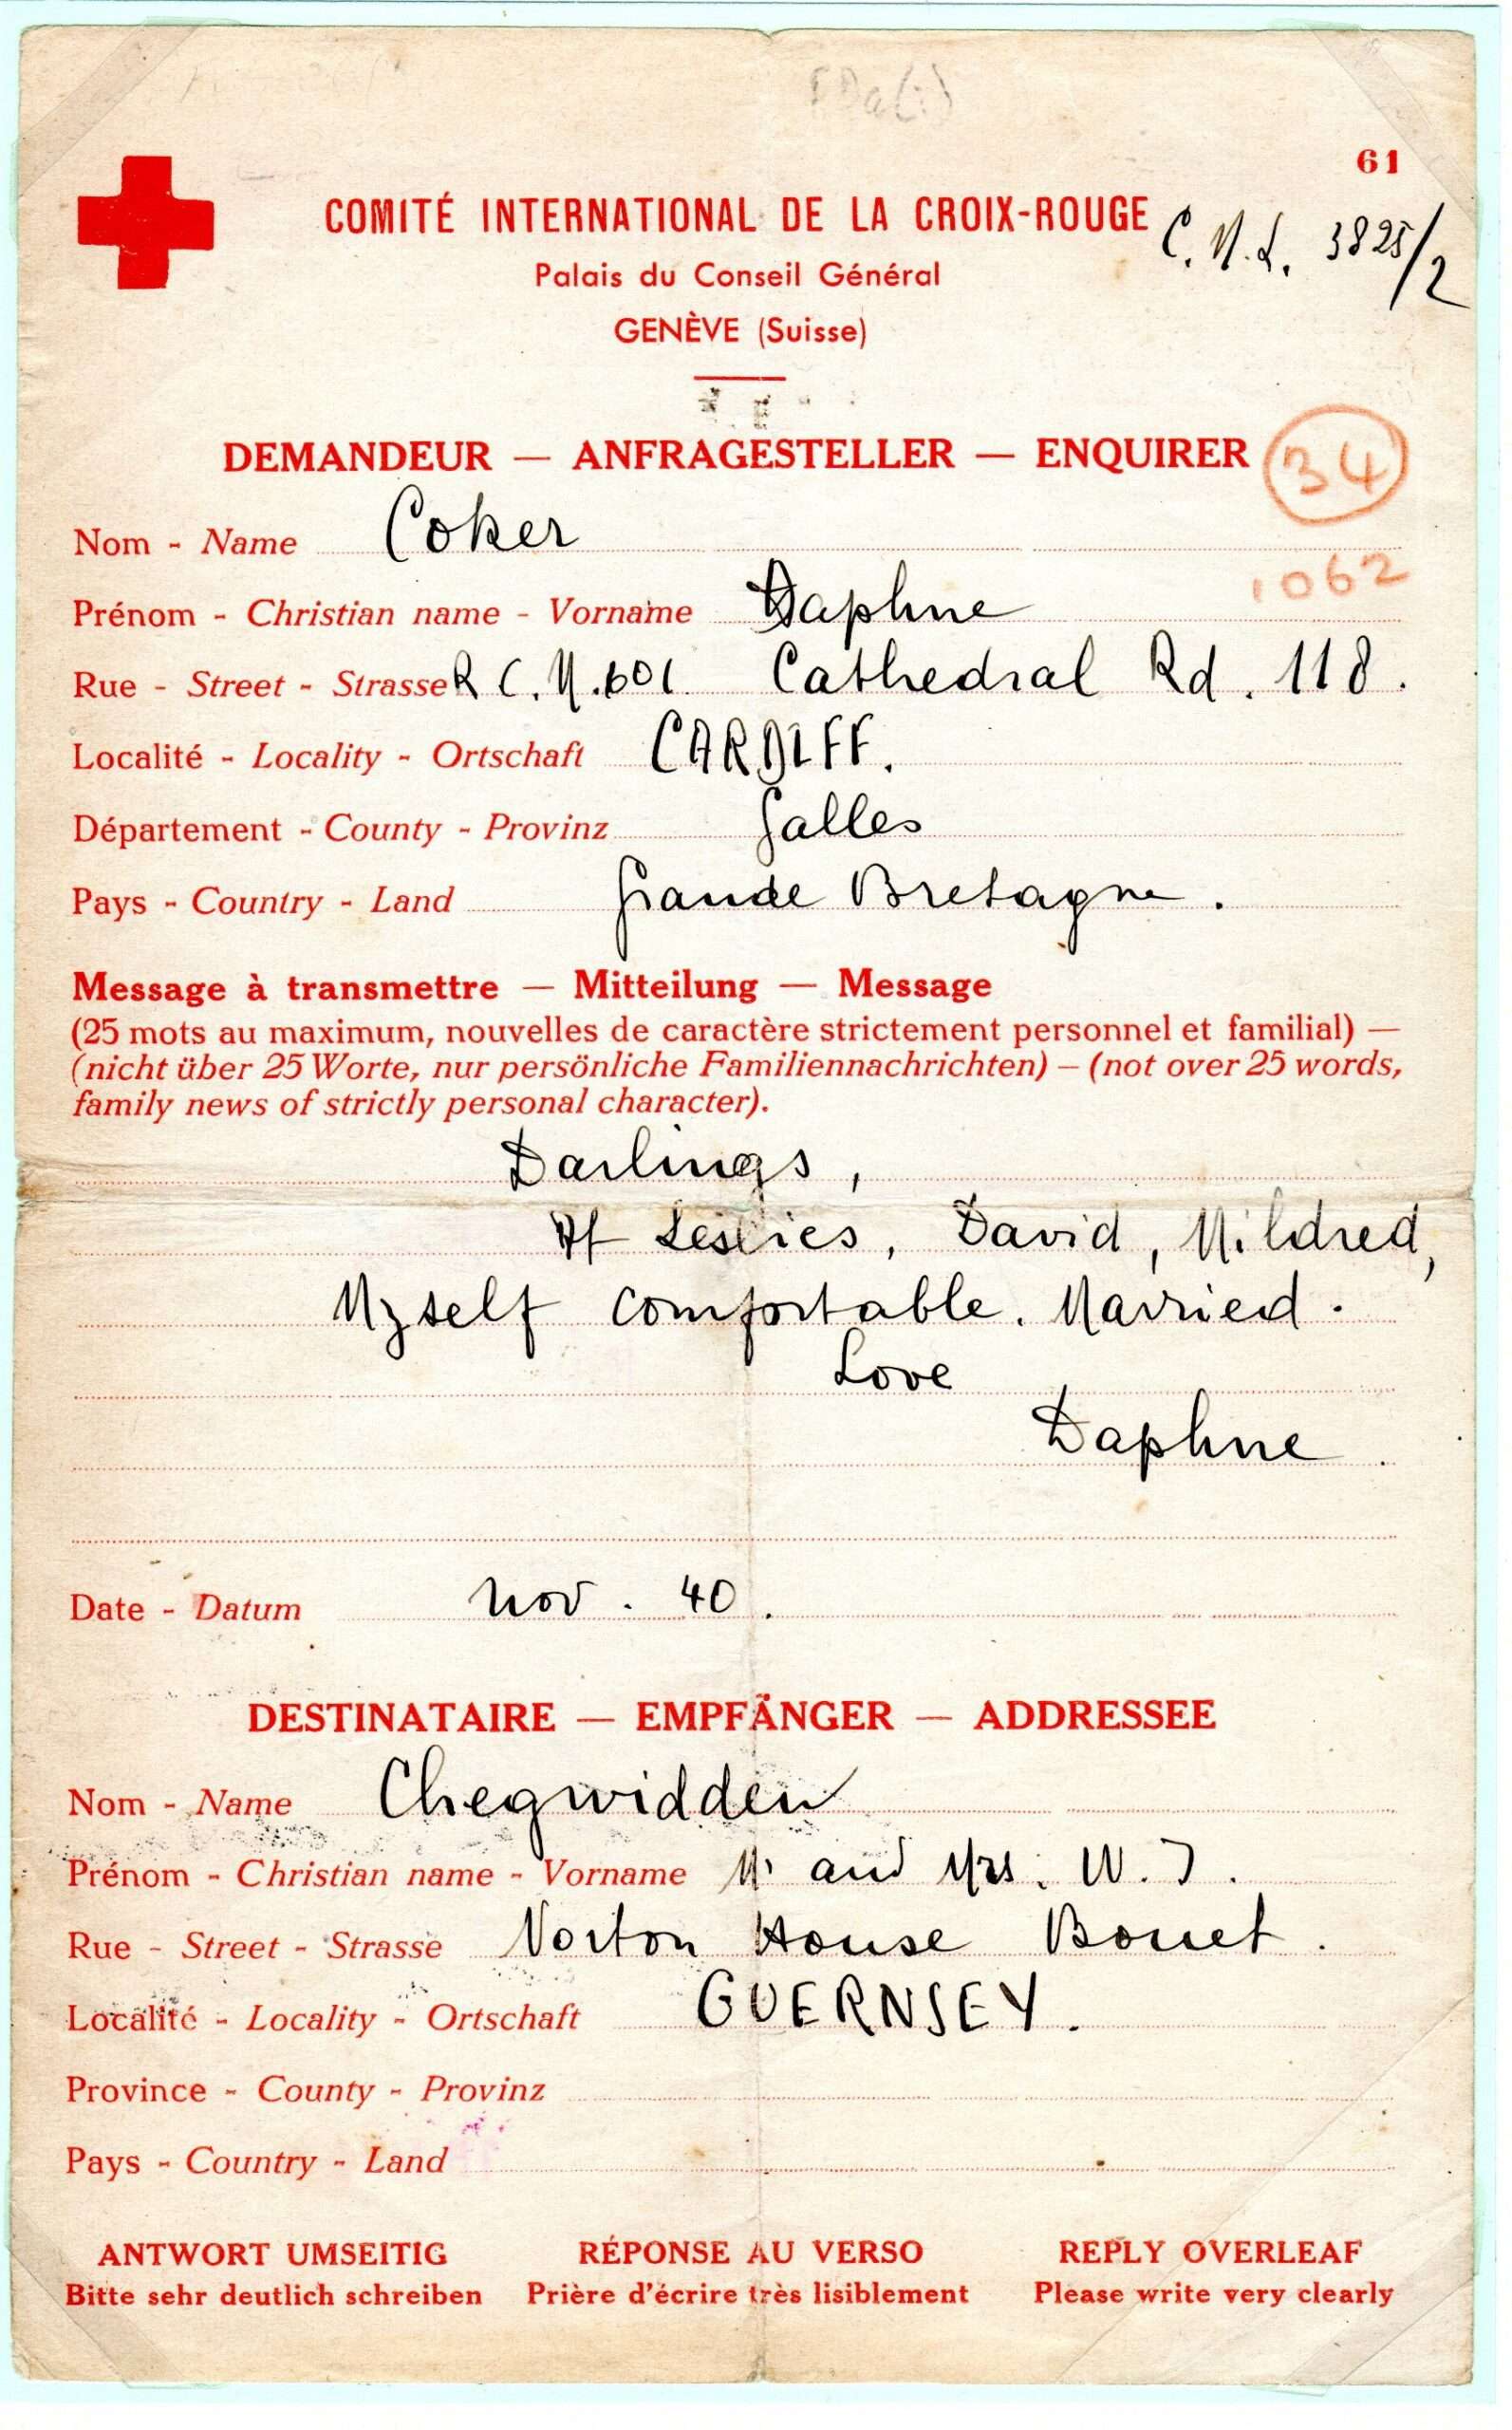 61
COMITÉ INTERNATIONAL DE LA CROIX-ROUGE
C. M. L. 3825/2
Palais du Conseil Général
GENÈVE (Suisse)
DEMANDEUR — ANFRAGESTELLER — ENQUIRER
34
Nom - Name Coker
1062
Prénom - Christian name - Vorname Daphne
Rue - Street - Strasse R C. M. 601. Cathedral Rd. 118.
Localité - Locality - Ortschaft CARDIFF.
Département - County - Provinz Galles
Pays - Country - Land Grande Bretagne.
Message à transmettre — Mitteilung — Message
(25 mots au maximum, nouvelles de caractère strictement personnel et familial) —
(nicht über 25 Worte, nur persönliche Familiennachrichten) – (not over 25 words,
family news of strictly personal character).
Darlings,
At Leslies, David, Mildred,
Myself comfortable. Married.
Love
Daphne.
Date - Datum Nov. 40.
DESTINATAIRE — EMPFÄNGER — ADDRESSEE
Nom - Name Chegwidden
Prénom - Christian name - Vorname Mr and Mrs. W. J.
Rue - Street - Strasse Norton House Bouet.
Localité - Locality - Ortschaft GUERNSEY.
Province - County - Provinz
Pays - Country - Land
ANTWORT UMSEITIG RÉPONSE AU VERSO REPLY OVERLEAF
Bitte sehr deutlich schreiben Prière d'écrire très lisiblement Please write very clearly